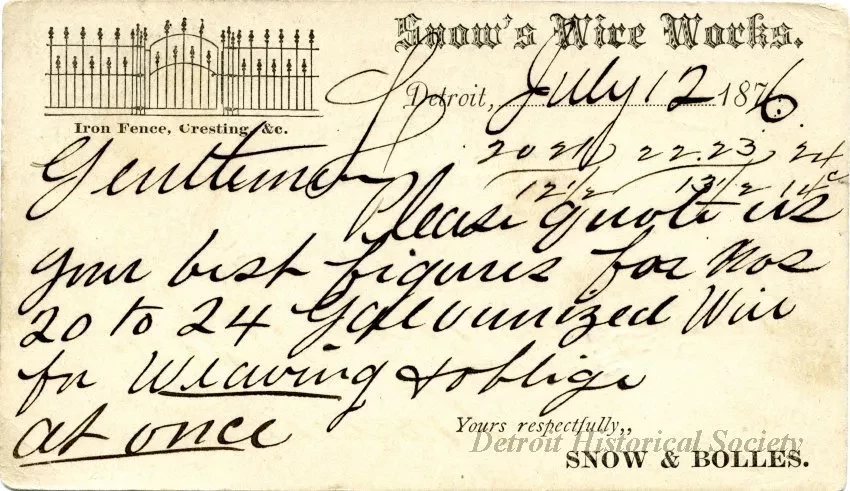 Snow's Wire Works.
Detroit, July 12 1876
Iron Fence, Cresting, &c.
20 21 22.23 24
12 1/2 13 1/2 14c
Gentlemen
Please quote us
your best figures for Nos
20 to 24 Galvanized Wire
for Weaving & oblige
at once
Yours respectfully,,
Detroit Historical Society
SNOW & BOLLES.